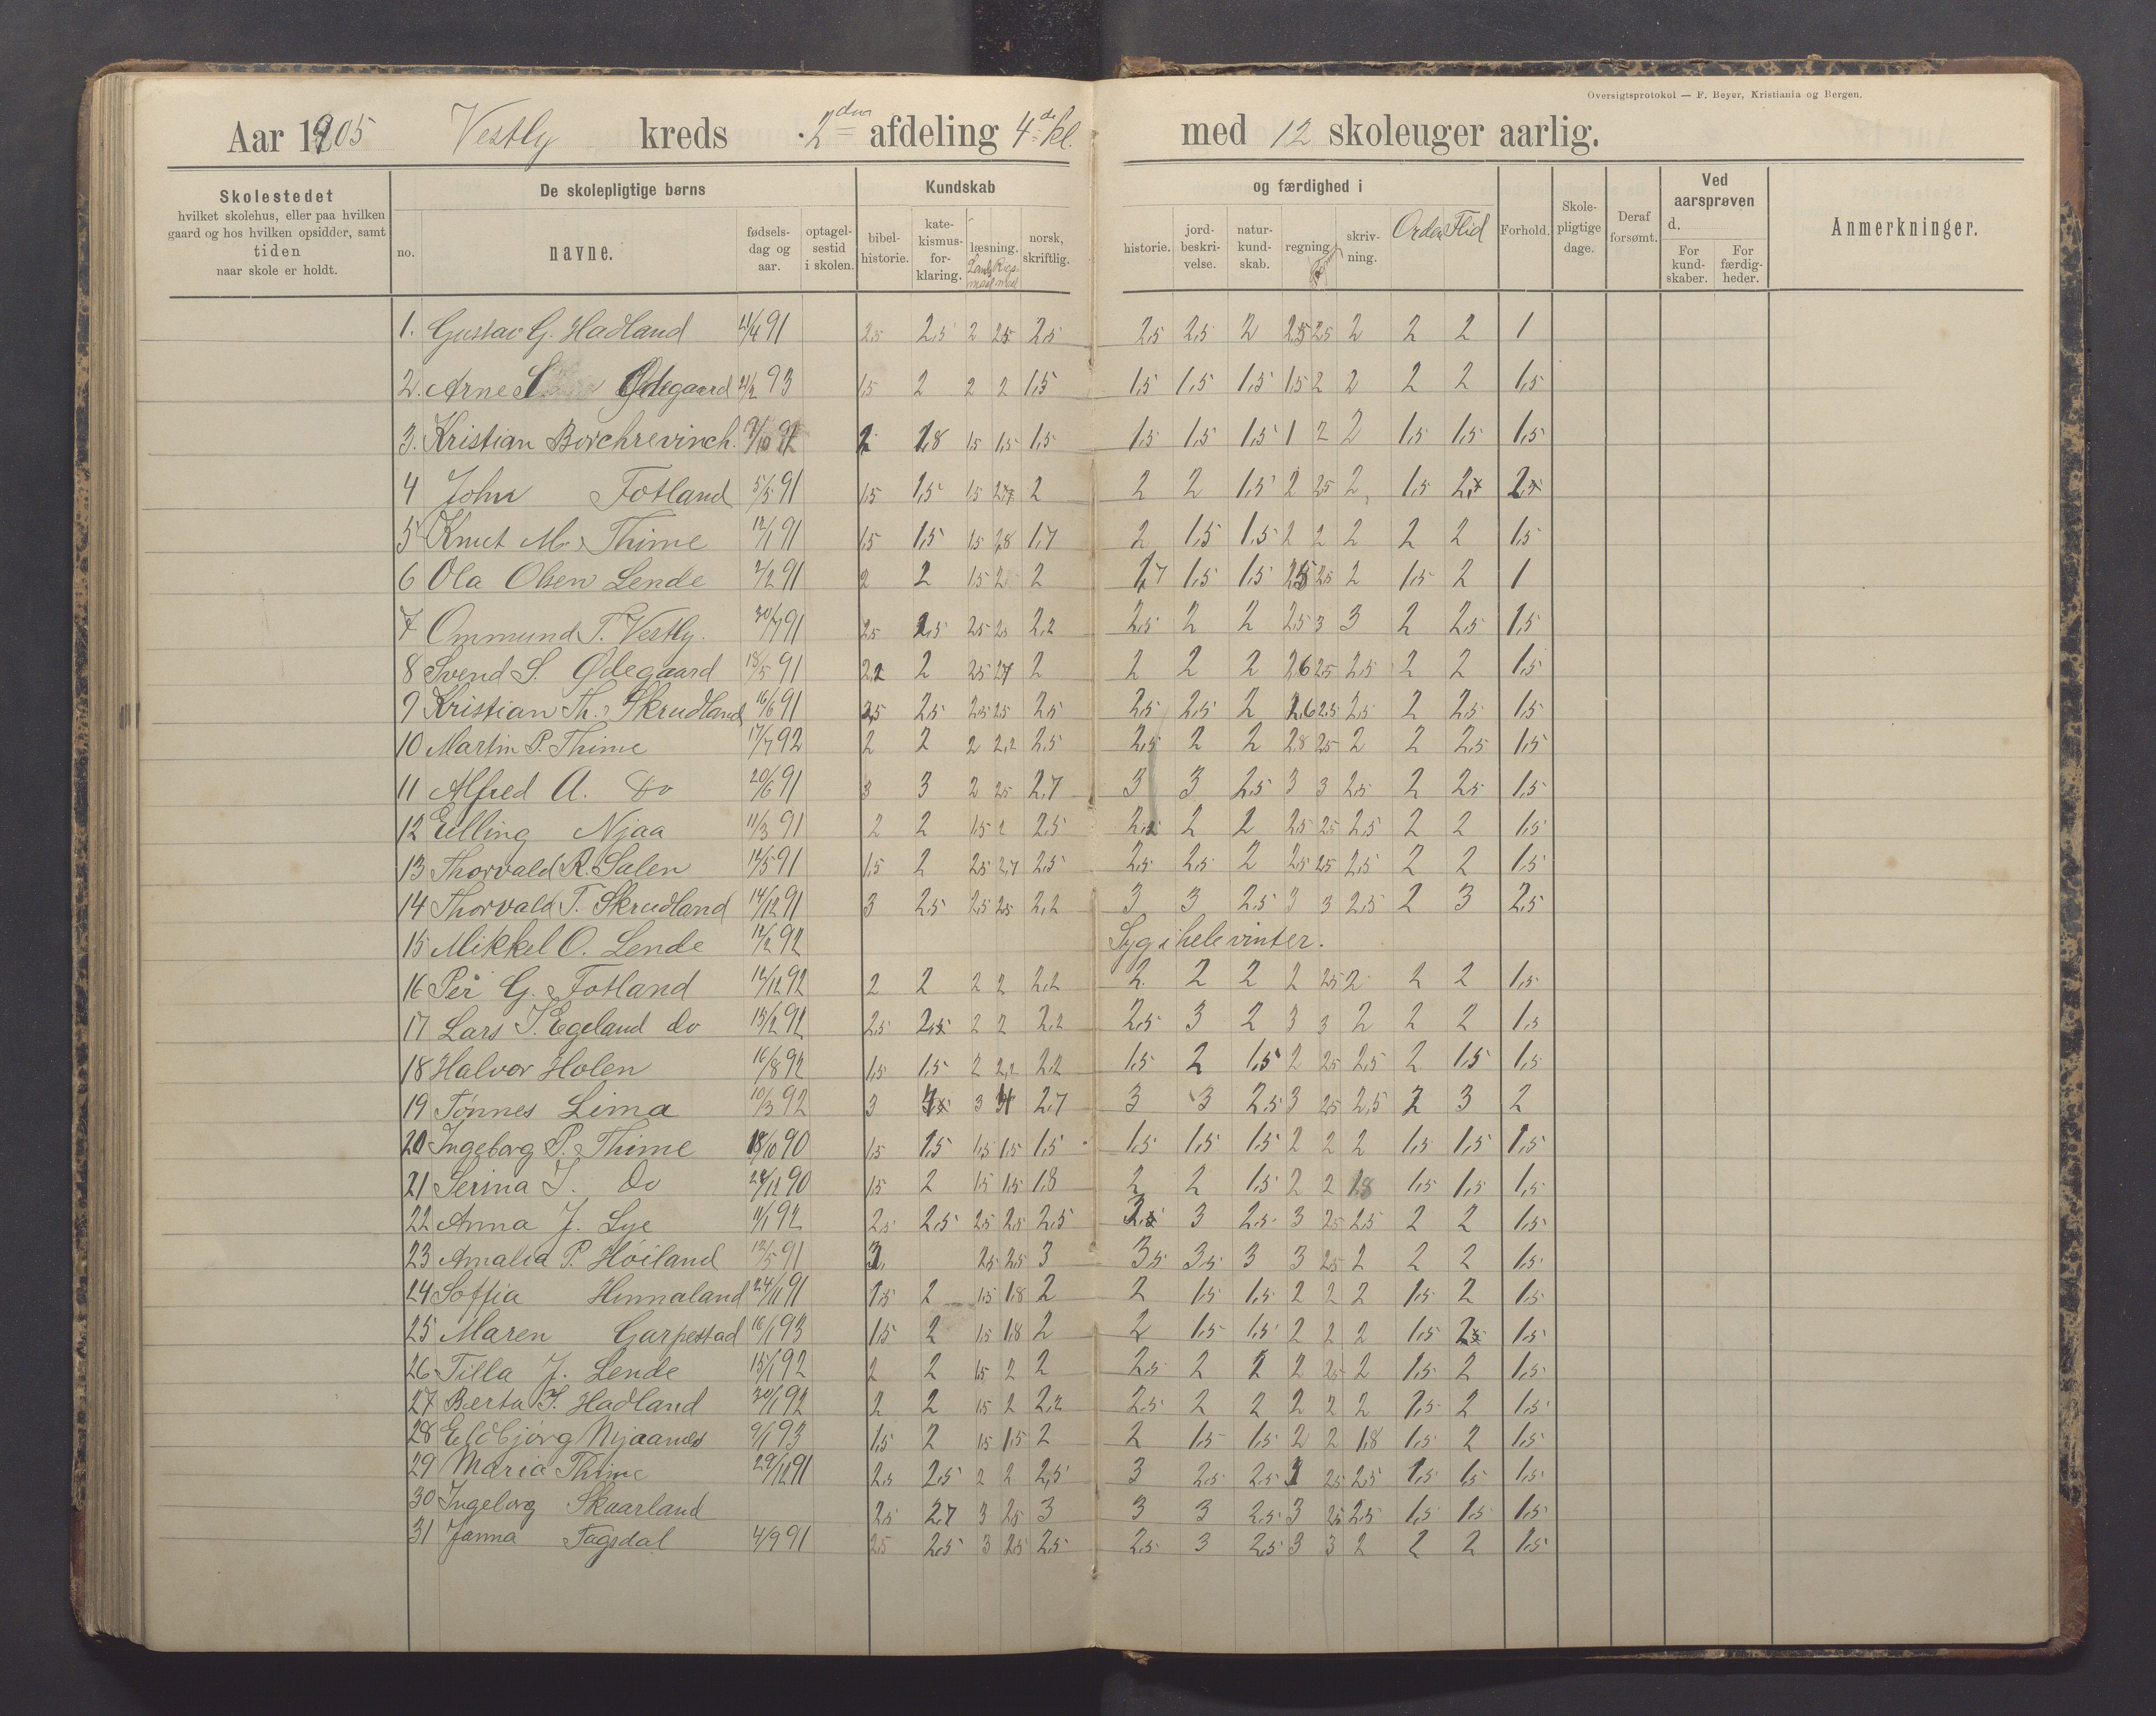 Oversigtsprotokol — F. Beyer, Kristiania og Bergen.
Aar 1905 Vestly kreds 2den afdeling 4de kl. med 12 skoleuger aarlig.
Skolestedet
hvilket skolehus, eller paa hvilken
gaard og hos hvilken opsidder, samt
tiden
naar skole er holdt.
De skolepligtige børns
no.
navne.
fødsels-
dag og
aar.
optagel-
sestid
i skolen.
Kundskab
bibel-
historie.
kate-
kismus-
for-
klaring.
læsning.
Lands
maal
Rigs
maal
norsk,
skriftlig.
og færdighed i
historie.
jord-
beskri-
velse.
natur-
kund-
skab.
regning.
skriv-
ning.
Orden
Flid
Forhold.
Skole-
pligtige
dage.
Deraf
forsømt.
Ved
aarsprøven
d.
For
kund-
skaber.
For
færdig-
heder.
Anmerkninger.
1. Gustav G. Hadland 21/4 91 2,5 2,5 2 2,5 2,5 2,5 2,5 2 2,5 2,5 2 2 2 1
2. Arne S Ødegaard 21/2 93 1,5 2 2 2 1,5 1,5 1,5 1,5 1,5 2 2 2 2 1,5
3. Kristian Borchrevinch. 9/10 92 2 1,8 1,5 1,5 1,5 1,5 1,5 1,5 1 2 2 1,5 1,5 1,5
4 John Fotland 5/5 91 1,5 1,5 1,5 2,7 2 2 2 1,5 2 2,5 2 1,5 2
5 Knut M. Thime 12/1 91 1,5 1,5 1,5 2,8 1,7 2 1,5 1,5 2 2 2 2 2 1,5
6 Ola Olsen Lende 2/2 91 2 2 1,5 2 2 1,7 1,5 1,5 2,5 2,5 2 1,5 2 1
7 Ommund T. Vestly. 30/7 91 2,5 2,5 2,5 2,5 2,2 2,5 2 2 2,5 3 3 2 2,5 1,5
8 Svend S. Ødegaard 18/5 91 2,2 2 2,5 2,7 2 2 2 2 2,6 2,5 2,5 2 2 1,5
9 Kristian Th. Skrudland 16/6 91 2,5 2,5 2,5 2,5 2,5 2,5 2,5 2 2,6 2,5 2,5 2 2,5 1,5
10 Martin P. Thime 17/7 92 2 2 2 2,2 2,5 2,5 2 2 2,8 2,5 2 2 2,5 1,5
11 Alfred A. Do 20/6 91 3 3 2 2,5 2,7 3 3 2,5 3 3 2,5 2 2,5 1,5
12 Elling Njaa 11/3 91 2 2 1,5 2 2,5 2,2 2 2 2,5 2,5 2,5 2 2 1,5
13 Thorvald R. Salen 14/5 91 1,5 2 2,5 2,7 2,5 2,5 2,5 2 2,5 2,5 2,5 2 2 1,5
14 Thorvald T. Skrudland 14/12 91 3 2,5 2,5 2,5 2,2 3 3 2,5 3 3 2,5 2 3 2,5
15 Mikkel O. Lende 14/2 92 Syg i hele vinter.
16 Per G. Fotland 12/12 92 2 2 2 2 2,2 2 2 2 2 2,5 2 2 2 1,5
17 Lars T. Egeland do 15/2 92 2,5 2,5 2 2 2,2 2,5 3 2 3 3 2 2 2 1,5
18 Halvor Holen 16/8 92 1,5 1,5 2 2,2 2,2 1,5 2 1,5 2 2,5 2,5 2 1,5 1,5
19 Tønnes Lima 10/3 92 3 3 4 2,7 3 3 2,5 3 2,5 2,5 2 3 2
20 Ingeborg P. Thime 18/10 90 1,5 1,5 1,5 1,5 1,5 1,5 1,5 1,5 2 2 2 1,5 1,5 1,5
21 Serina I. Do 24/12 90 1,5 2 1,5 1,5 1,8 2 2 1,5 2 2 1,8 1,5 1,5 1,5
22 Anna J. Lye 11/1 92 2,5 2,5 2,5 2,5 2,5 3 2,5 3 2,5 2,5 2 2 1,5
23 Amalia P. Høiland 12/5 91 3 2,5 2,5 3 3,5 3,5 3 3 2,5 2 2 2 1,5
24 Soffia Hinnaland 24/11 91 1,5 2 1,5 1,8 2 2 1,5 1,5 2 2 2 1,5 2 1,5
25 Maren Garpestad 16/1 93 1,5 2 1,5 1,8 2 2 1,5 1,5 2 2 2 1,5 2 1,5
26 Tilla J. Lende 15/1 92 2 2 1,5 2 2 2,5 2 2 2 2,5 2 1,5 2 1,5
27 Berta I. Hadland 30/1 92 2 2 1,5 2 2,2 2,5 2 2 2 2 2 1,5 2 1,5
28 Eldbjørg Njaanes 9/1 93 1,5 2 1,5 1,5 2 2 1,5 1,5 2 2 1,8 1,5 2 1,5
29 Maria Thime 29/12 91 2,5 2,5 2 2 2,5 3 2,5 2,5 3 2,5 2,5 1,5 1,5 1,5
30 Ingeborg Skaarland 2,5 2,7 3 2,5 3 3 3 2,5 3 2,5 2,5 1,5 1,5 1,5
31 Janna Tagsdal 4/9 91 2,5 2,5 3 2,5 2,5 2,5 3 2,5 3 3 2 2 2 1,5